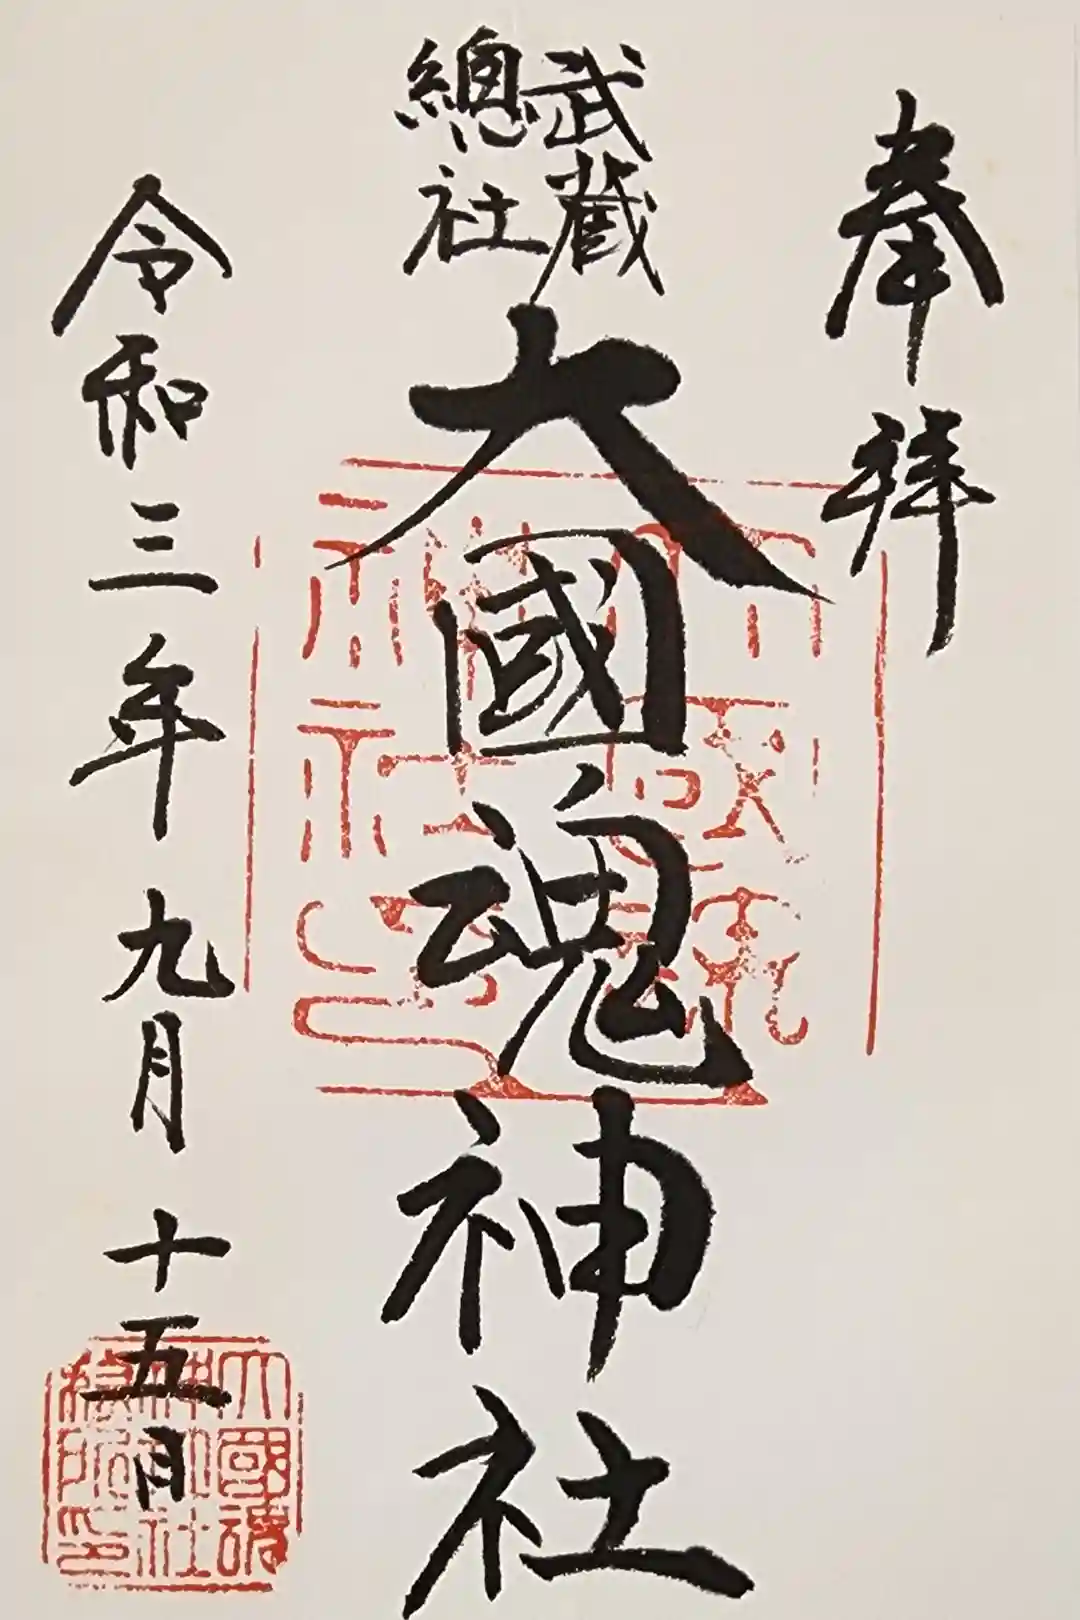 奉拝
武蔵
總社
大國魂神社
令和三年九月十五日
大國魂
神社社
務所印